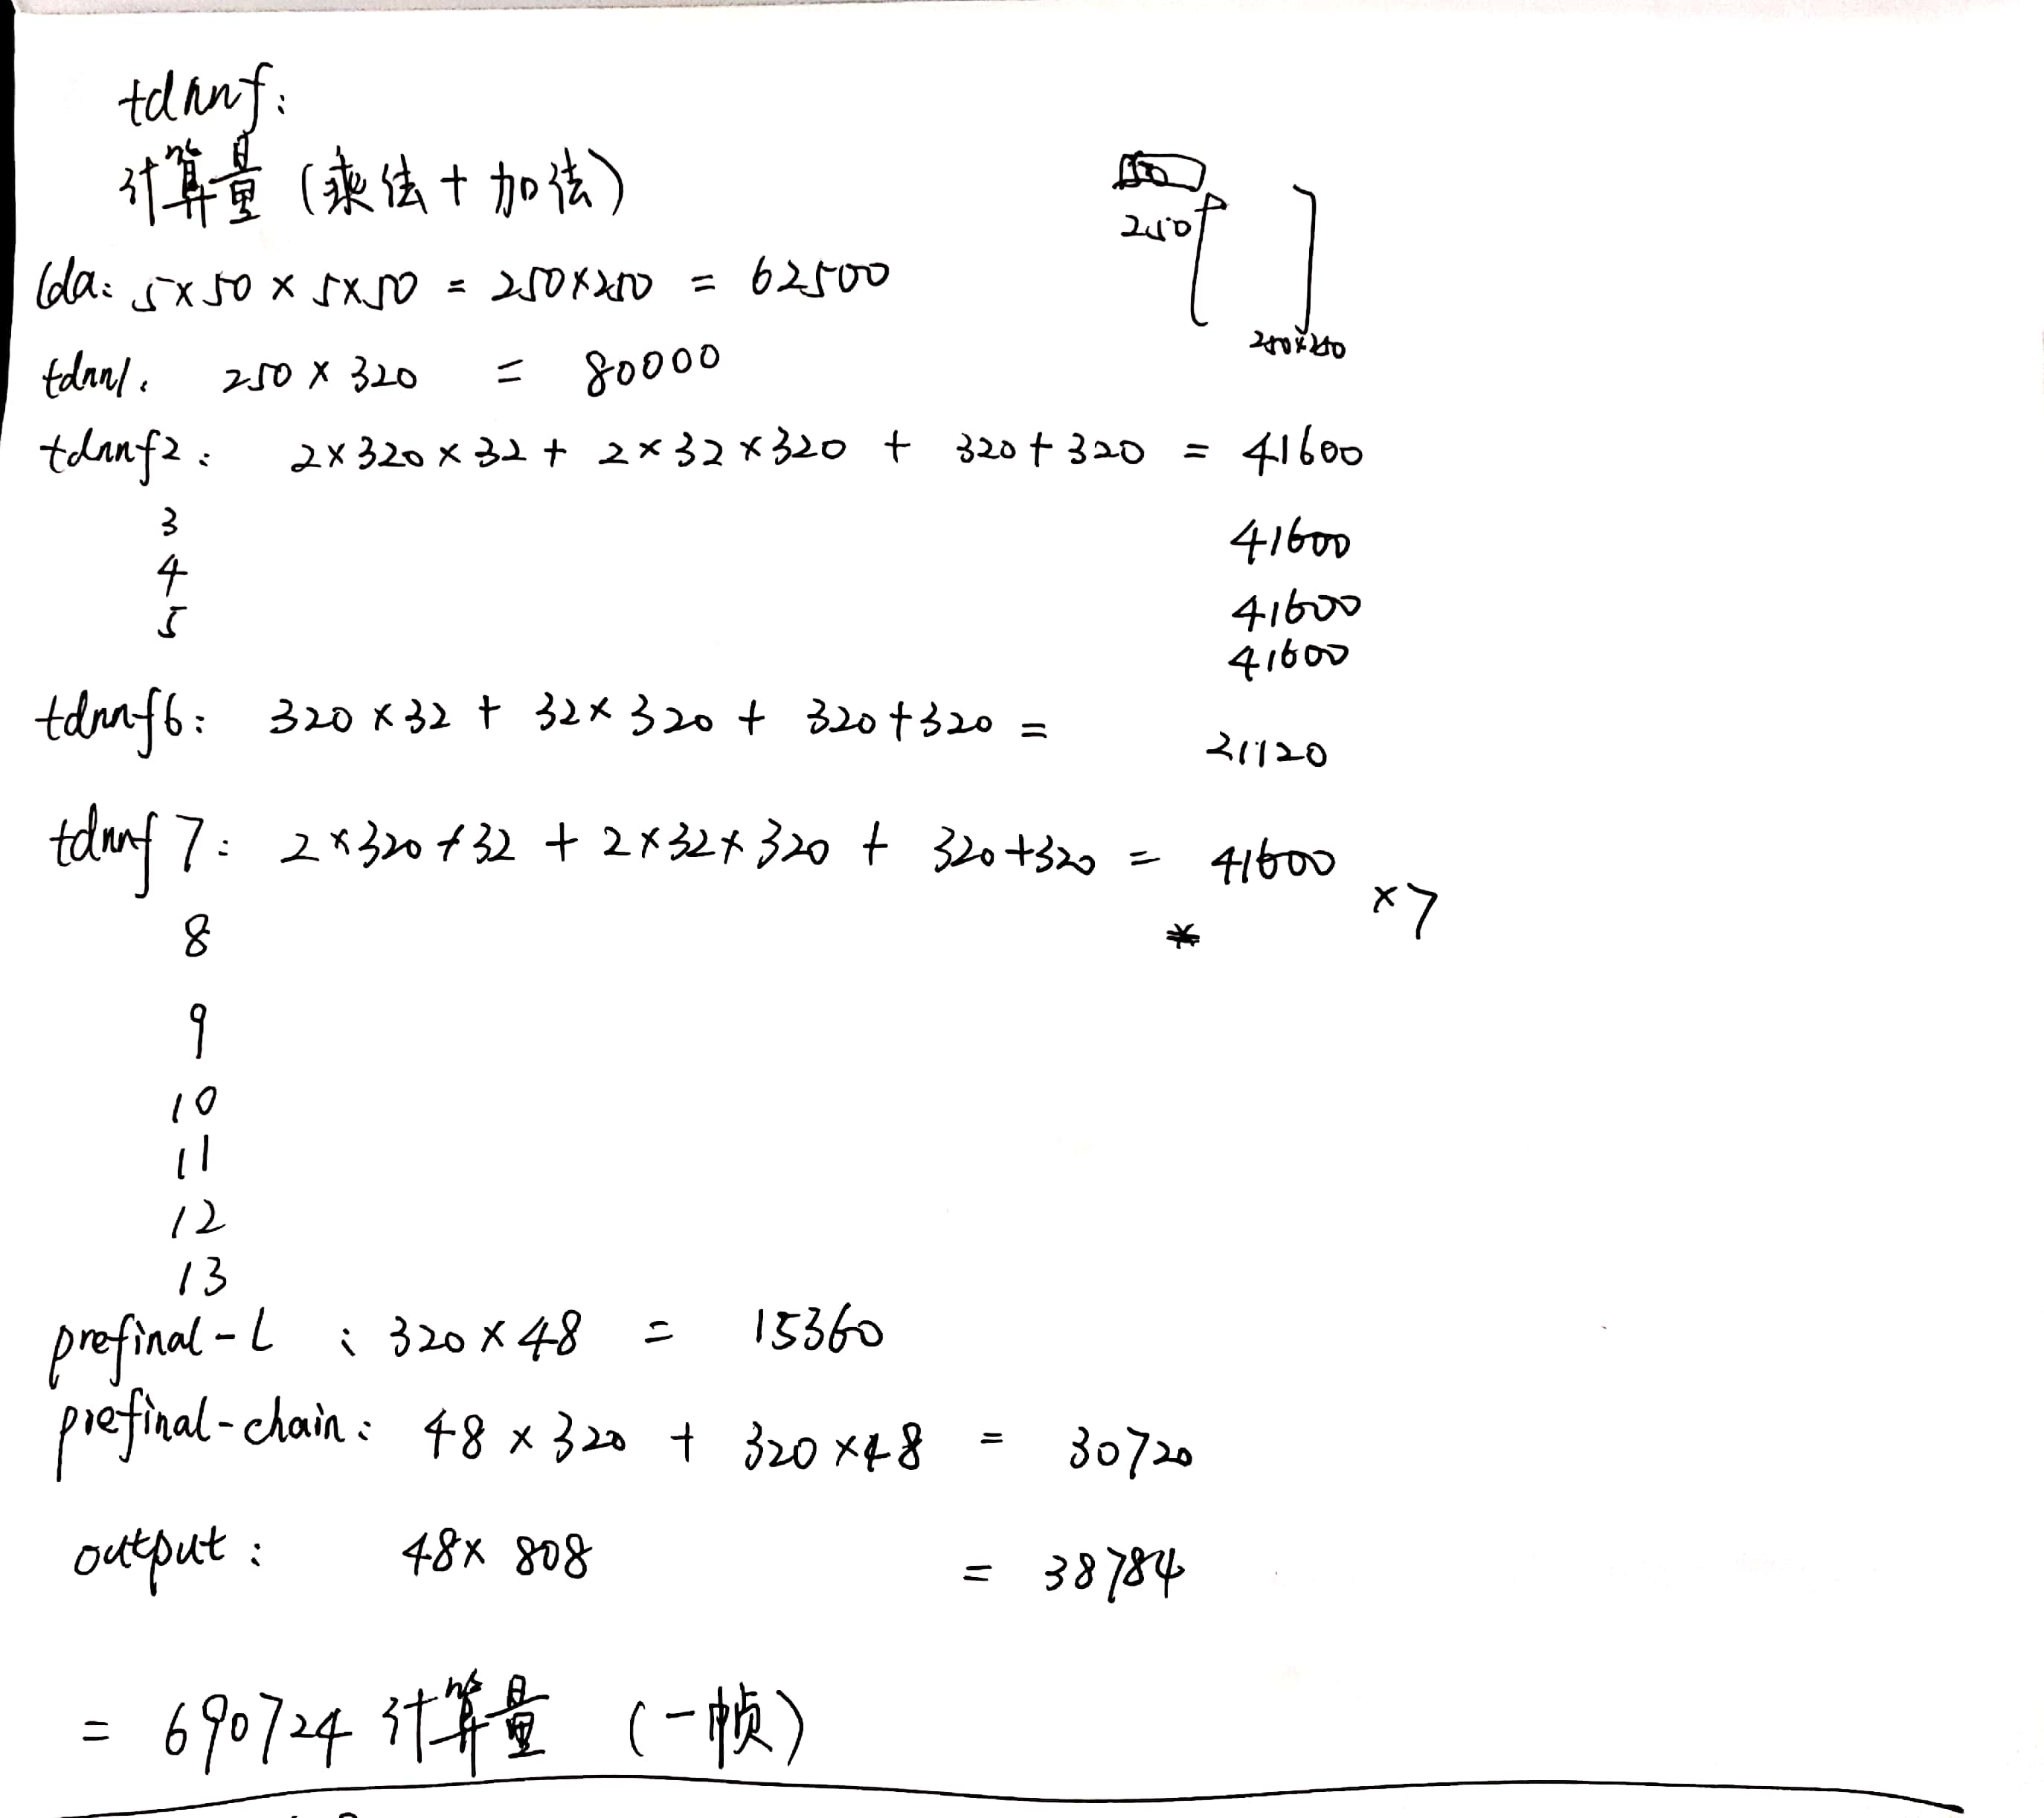 tdnnf:
计算量 (乘法+加法)
250
lda: 5×50×5×50 = 250×250 = 62500
250×250
tdnn1. 250×320 = 80000
tdnnf2: 2×320×32+2×32×320+320+320 = 41600
3 41600
4 41600
5 41600
tdnnf6: 320×32+32×320+320+320= 21120
tdnnf7: 2×320×32+2×32×320+320+320 = 41600 ×7
8
9
10
11
12
13
prefinal-l : 320×48 = 15360
prefinal-chain: 48×320+320×48 = 30720
output: 48×808 = 38784
= 690724 计算量 (一帧)